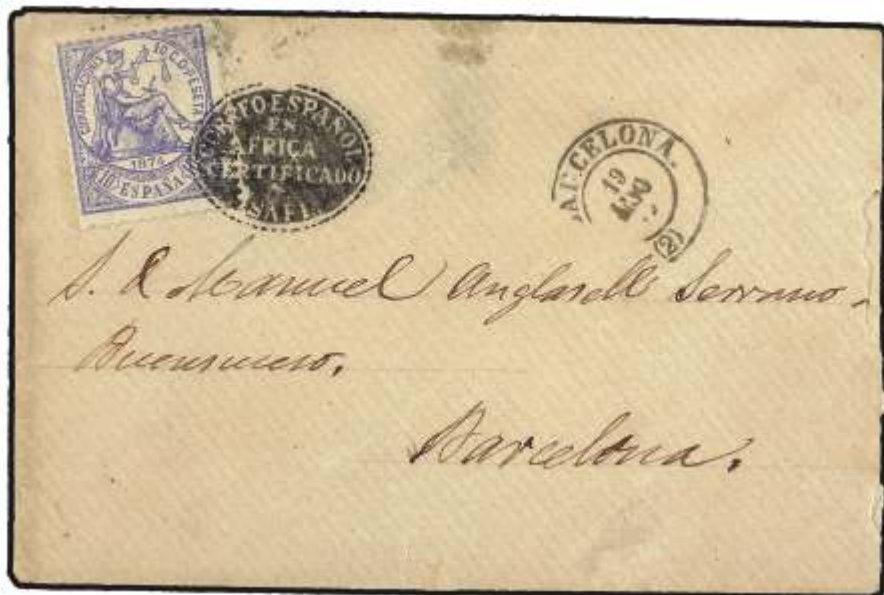 COMUNICACIONES 10 C. DE PESETA
1874
10 Cs ESPAÑA 10 Cs
CORREO ESPAÑOL
EN
AFRICA
CERTIFICADO
SAFI
BARCELONA.
19
(2)
S. D. Manuel Anglasell Serrano.
Barcelona.